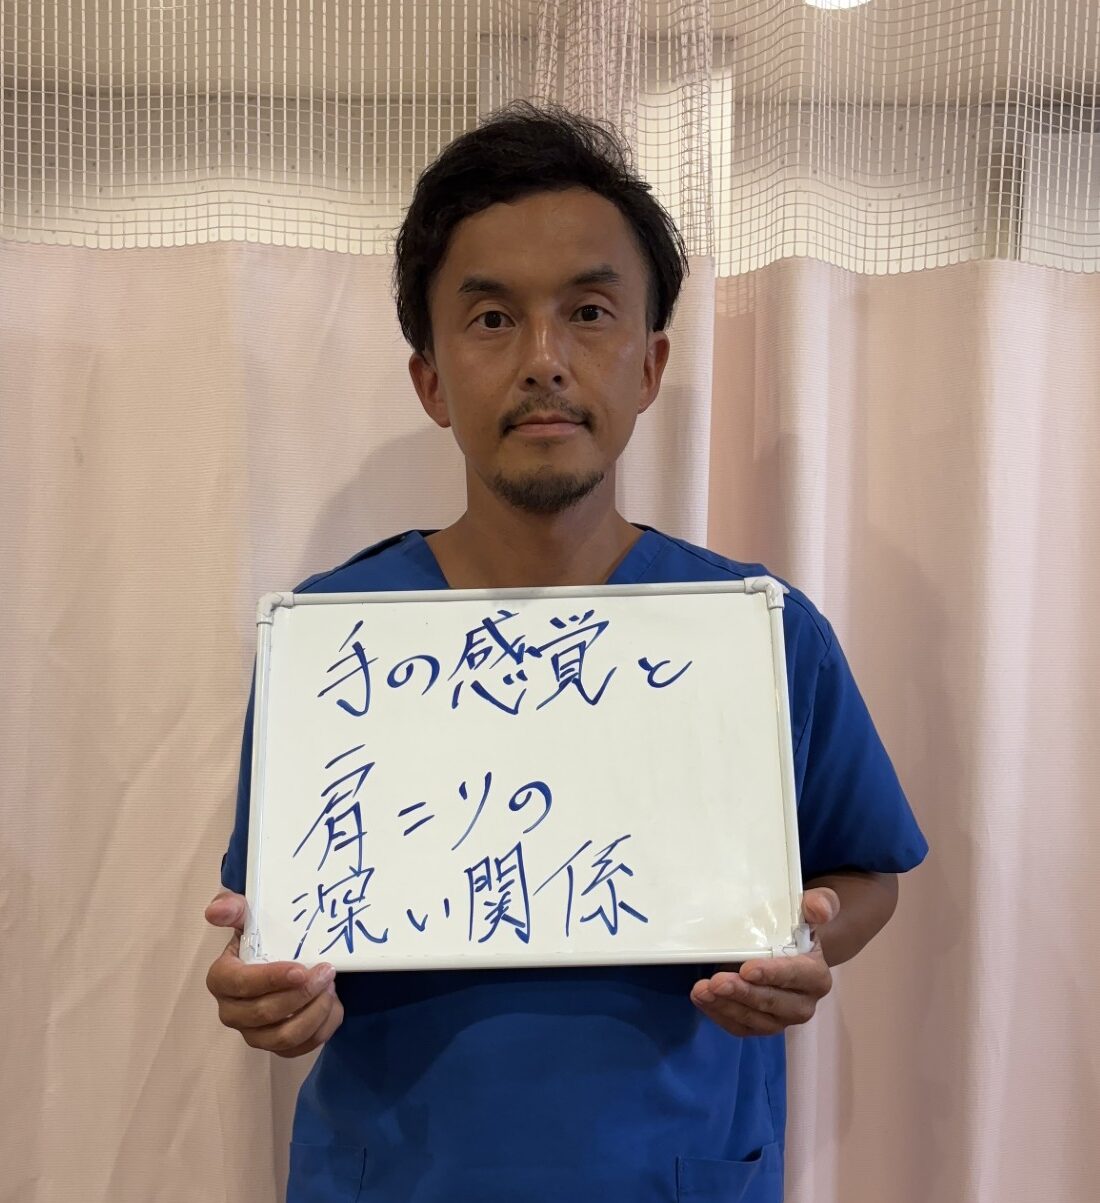 手の感覚と
肩こりの
深い関係